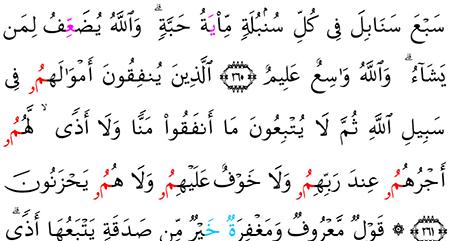 سَبْعَ سَنَابِلَ فِى كُلِّ سُنۢبُلَةٍ مِّاْيَةُ حَبَّةٍ ۗ وَاللَّهُ يُضَعِّفُ لِمَن
يَشَآءُ ۗ وَاللَّهُ وَٰسِعٌ عَلِيمٌ ﴿٢٦٠﴾ الَّذِينَ يُنفِقُونَ أَمْوَٰلَهُمُۥ فِى
سَبِيلِ اللَّهِ ثُمَّ لَا يُتْبِعُونَ مَا أَنفَقُواْ مَنًّا وَلَا أَذًى ۙ لَّهُمُۥ
أَجْرُهُمُۥ عِندَ رَبِّهِمُۥ وَلَا خَوْفٌ عَلَيْهِمُۥ وَلَا هُمُۥ يَحْزَنُونَ
﴿٢٦١﴾ ۞ قَوْلٌ مَّعْرُوفٌ وَمَغْفِرَةٌ خَيْرٌ مِّن صَدَقَةٍ يَتْبَعُهَا أَذًى ۗ